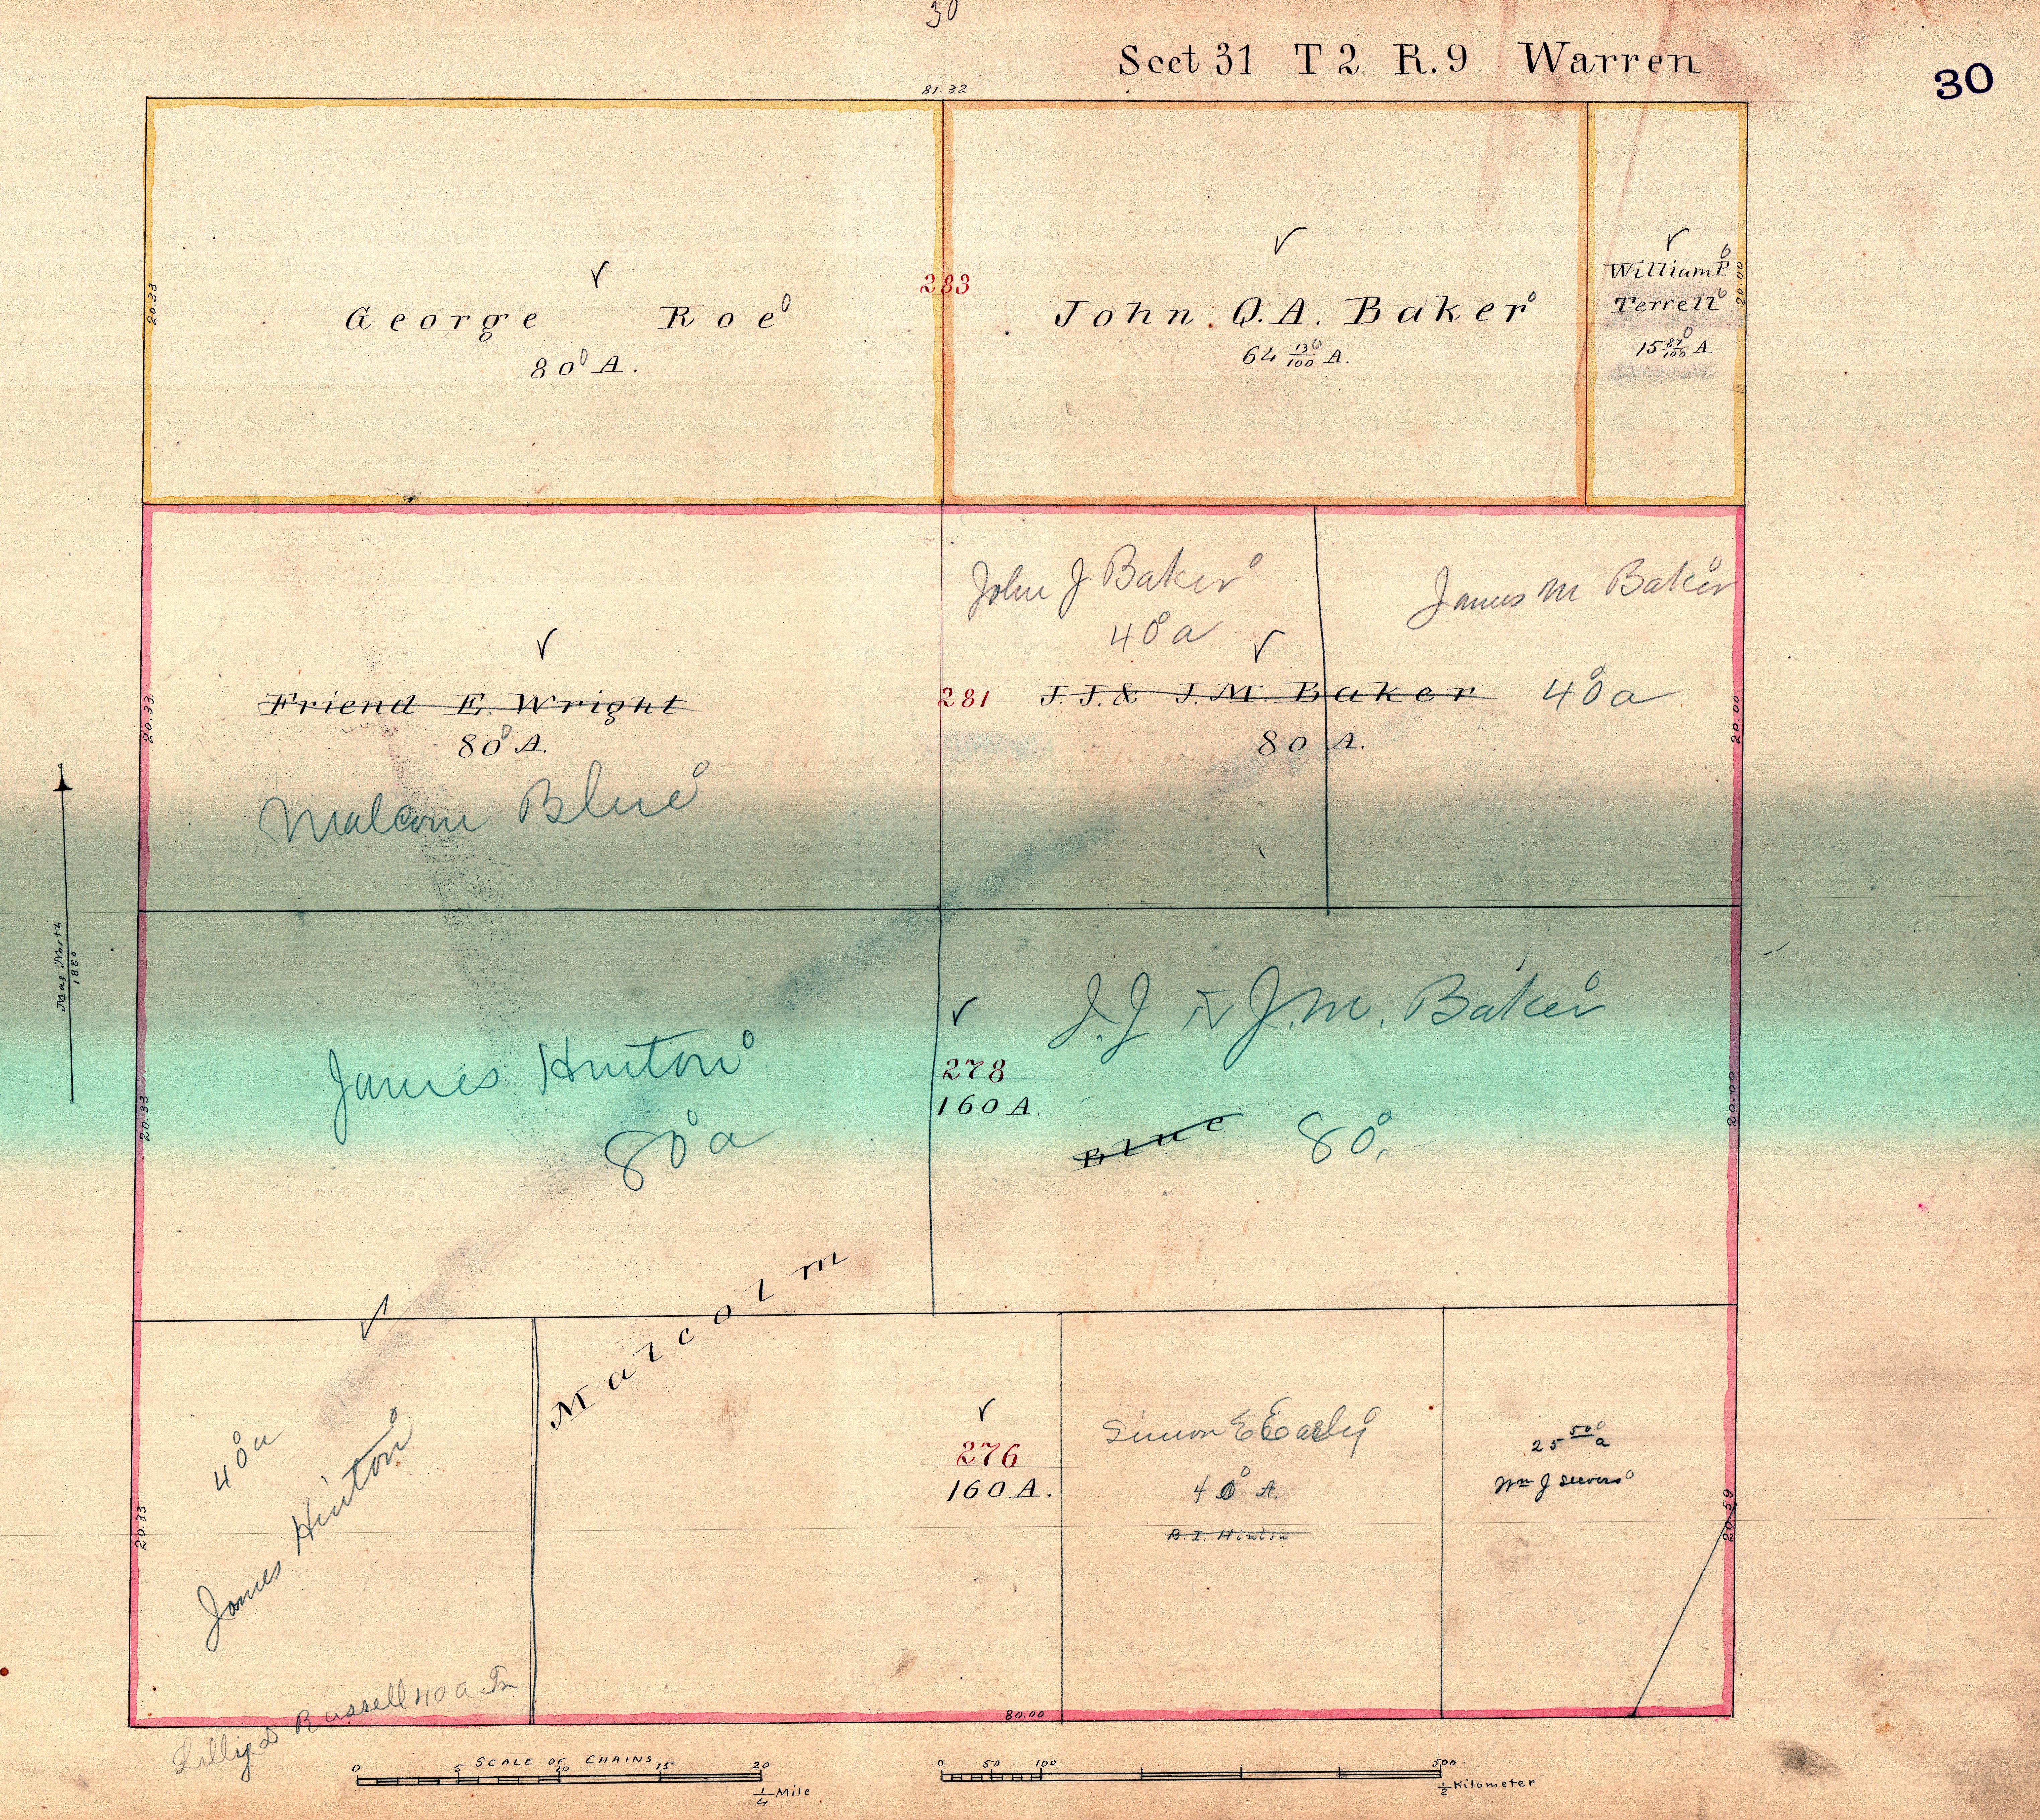 30
Sect 31 T 2 R. 9 Warren
30
81.32
20.33
George Roe
80 A.
283
John Q. A. Baker
64 13/100 A.
William P
Terrell
15 87/100 A.
20.00
John J Baker
40 a
James M Baker
40 a
20.33
Friend E. Wright
80 A.
Malcom Blue
281
J. J. & J. M. Baker
80 A.
20.00
Mag North
1880
James Hinton
80 a
20.33
278
160 A.
J. J & J. M. Baker
Blue 80
20.00
Malcolm
40 a
James Hinton
20.33
276
160 A.
Simon E Early
40 A.
R. I. Hinton
25 50 a
Wm J
20.59
Lillie D Russell 40 a Tr
80.00
SCALE OF CHAINS
0 5 10 15 20
1/4 Mile
0 50 100 500
1/2 Kilometer